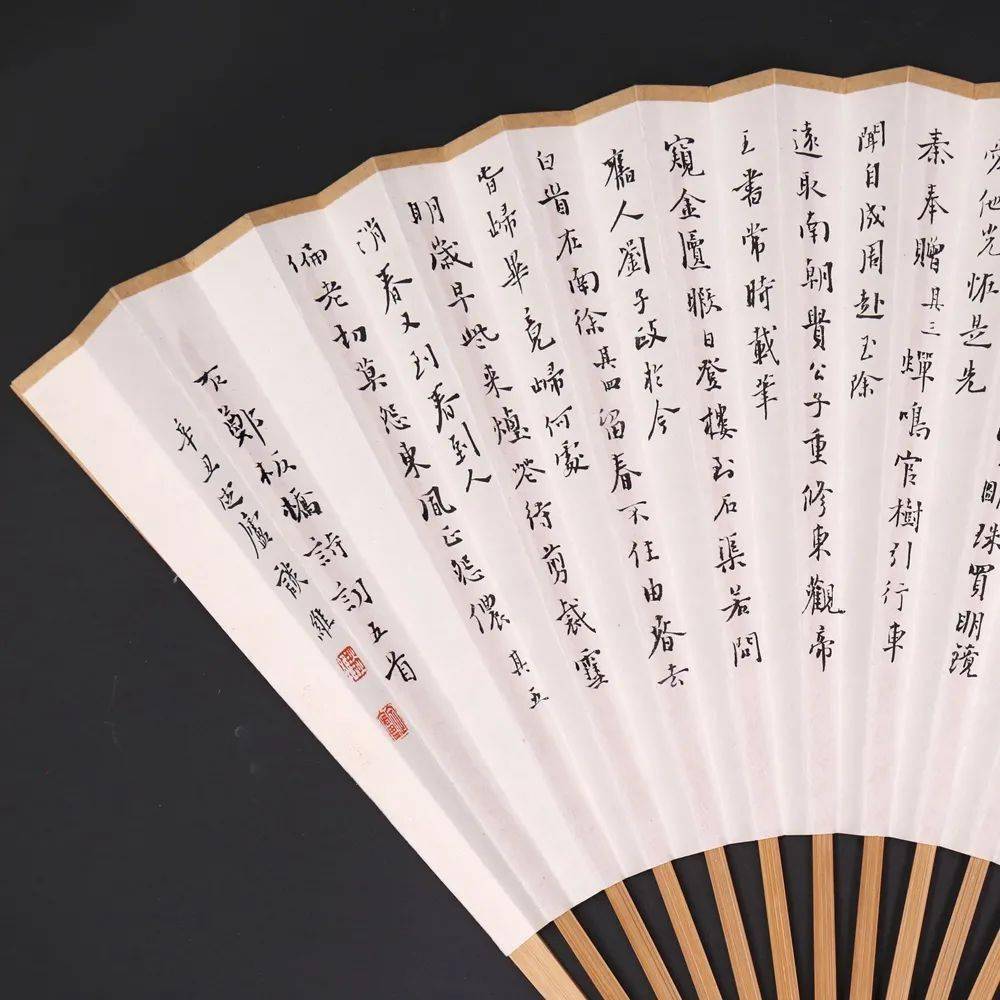 他光怪是先
明珠買明鏡
秦奉贈其三蟬鳴官樹引行車
聞自成周赴玉除
遠取南朝貴公子重修東觀帝
王書常時載筆
窺金匱暇日登樓到石渠若問
舊人劉子政於今
白首在南徐其四留春不住由春去
春歸畢竟歸何處
明歲早些来煙花待剪裁雪
消春又到春到人
偏老切莫怨東風正怨儂其五
右鄭板橋詩詞五首
辛丑廬維